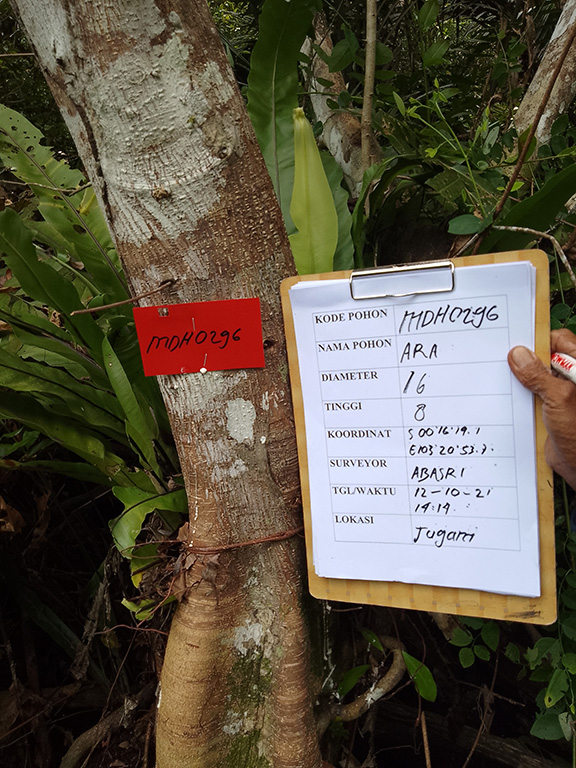 MDH0296
KODE POHON MDH0296
NAMA POHON ARA
DIAMETER 16
TINGGI 8
KOORDINAT S 00°16'19.1
E103°20'53.7
SURVEYOR ABASRI
TGL/WAKTU 12-10-21
14:14
LOKASI Jugam